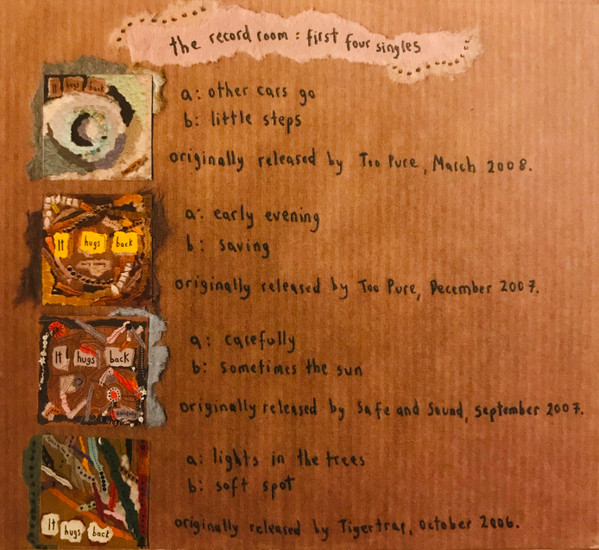 the record room : first four singles
It hugs back
a: other cars go
b: little steps
originally released by Too Pure, March 2008.
It hugs back
a: early evening
b: saving
originally released by Too Pure, December 2007.
It hugs back
a: carefully
b: sometimes the sun
originally released by Safe and Sound, september 2007.
It hugs back
a: lights in the trees
b: soft spot
originally released by Tigertrap, October 2006.